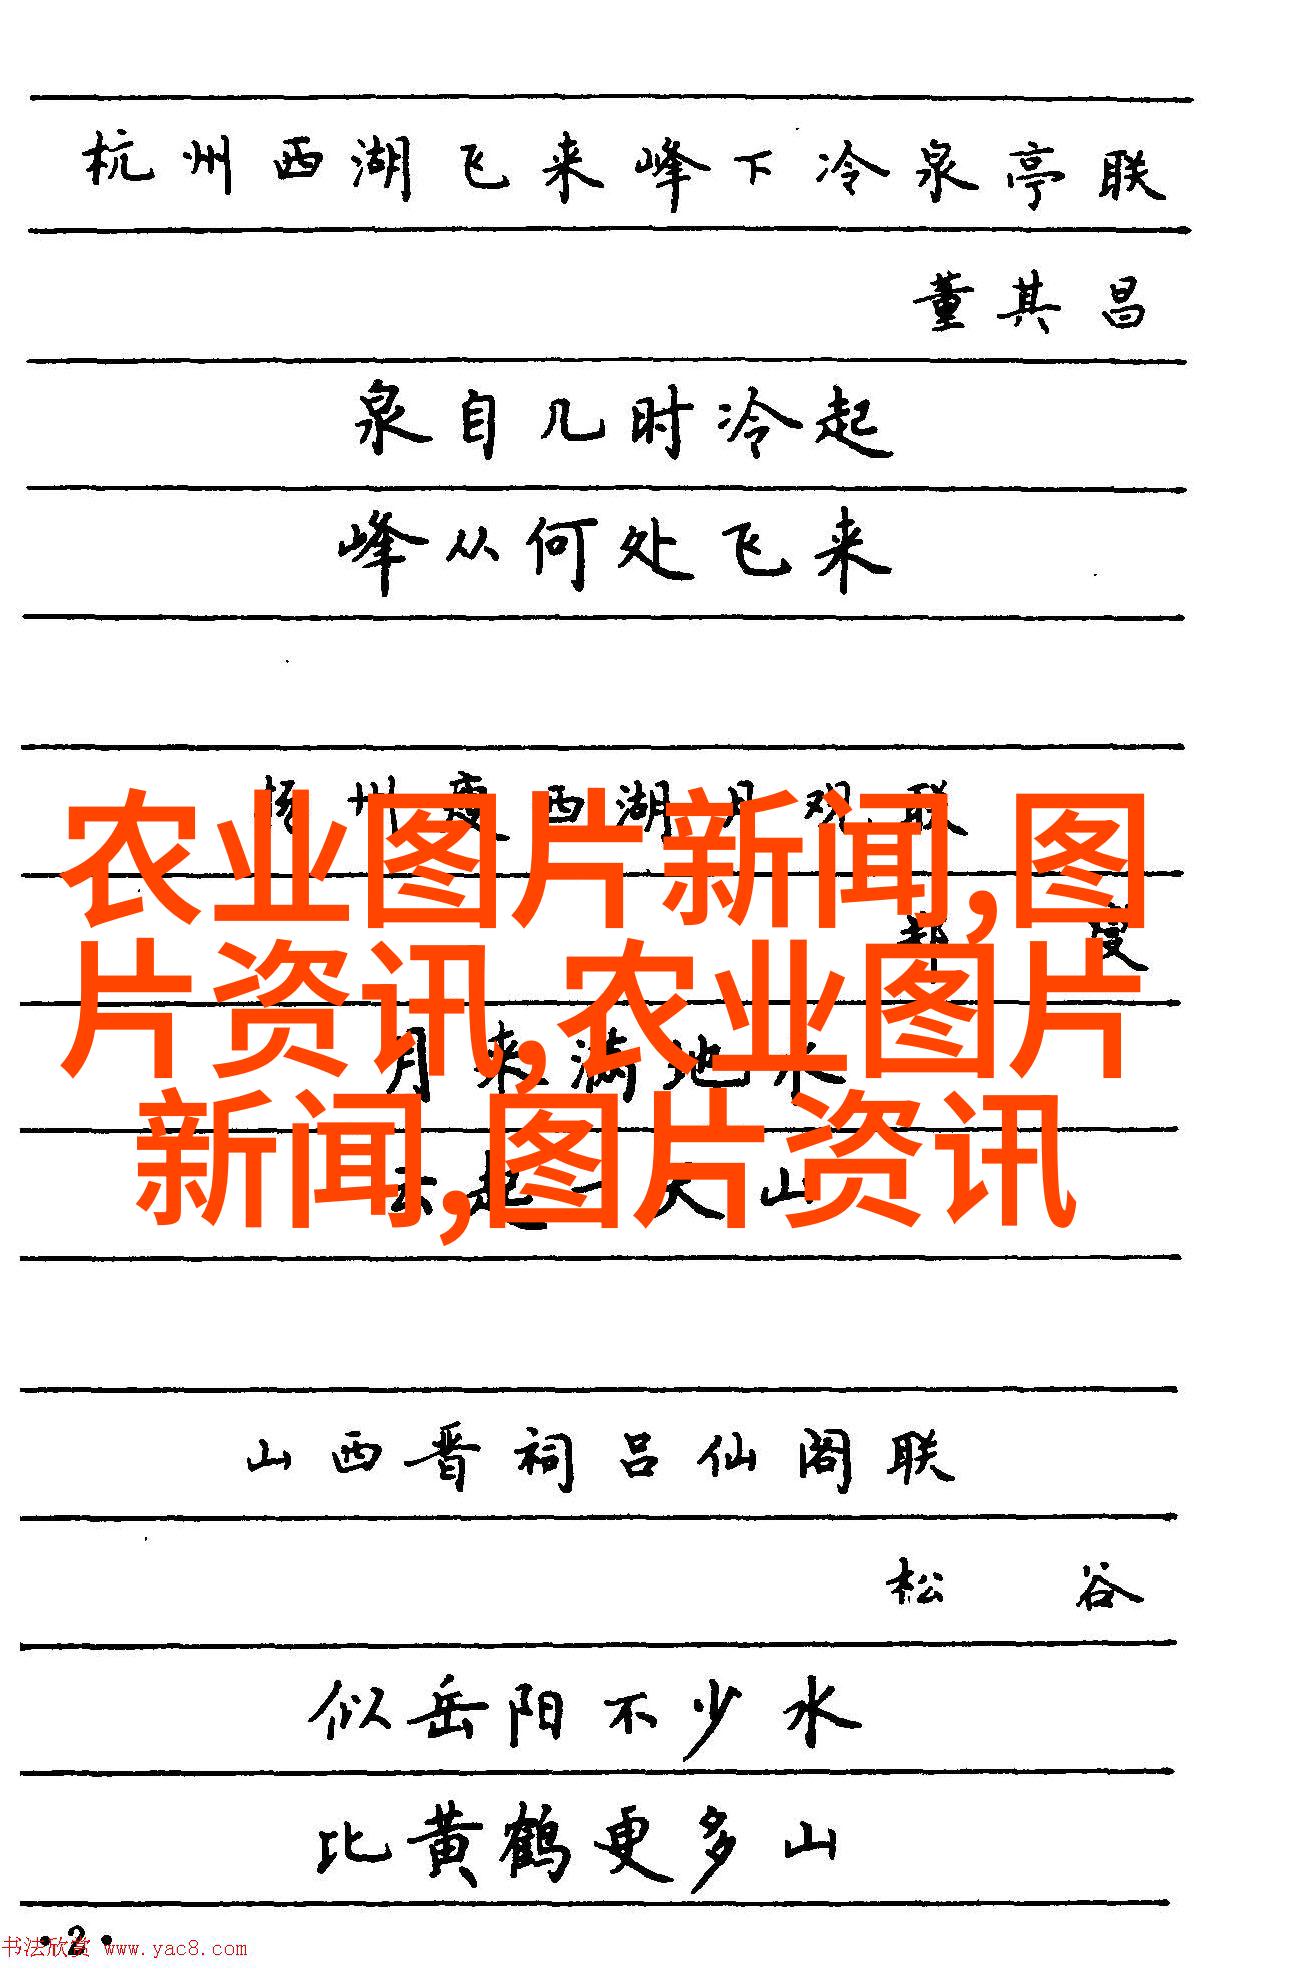 杭州西湖飞来峰下冷泉亭联
董其昌
泉自几时冷起
峰从何处飞来
州瘦西湖月观联
农业图片新闻,图
片资讯,农业图片
新闻,图片资讯
月来满地水
云起一天山
山西晋祠吕仙阁联
松谷
似岳阳不少水
比黄鹤更多山
·2·
书法欣赏 www.yac8.com